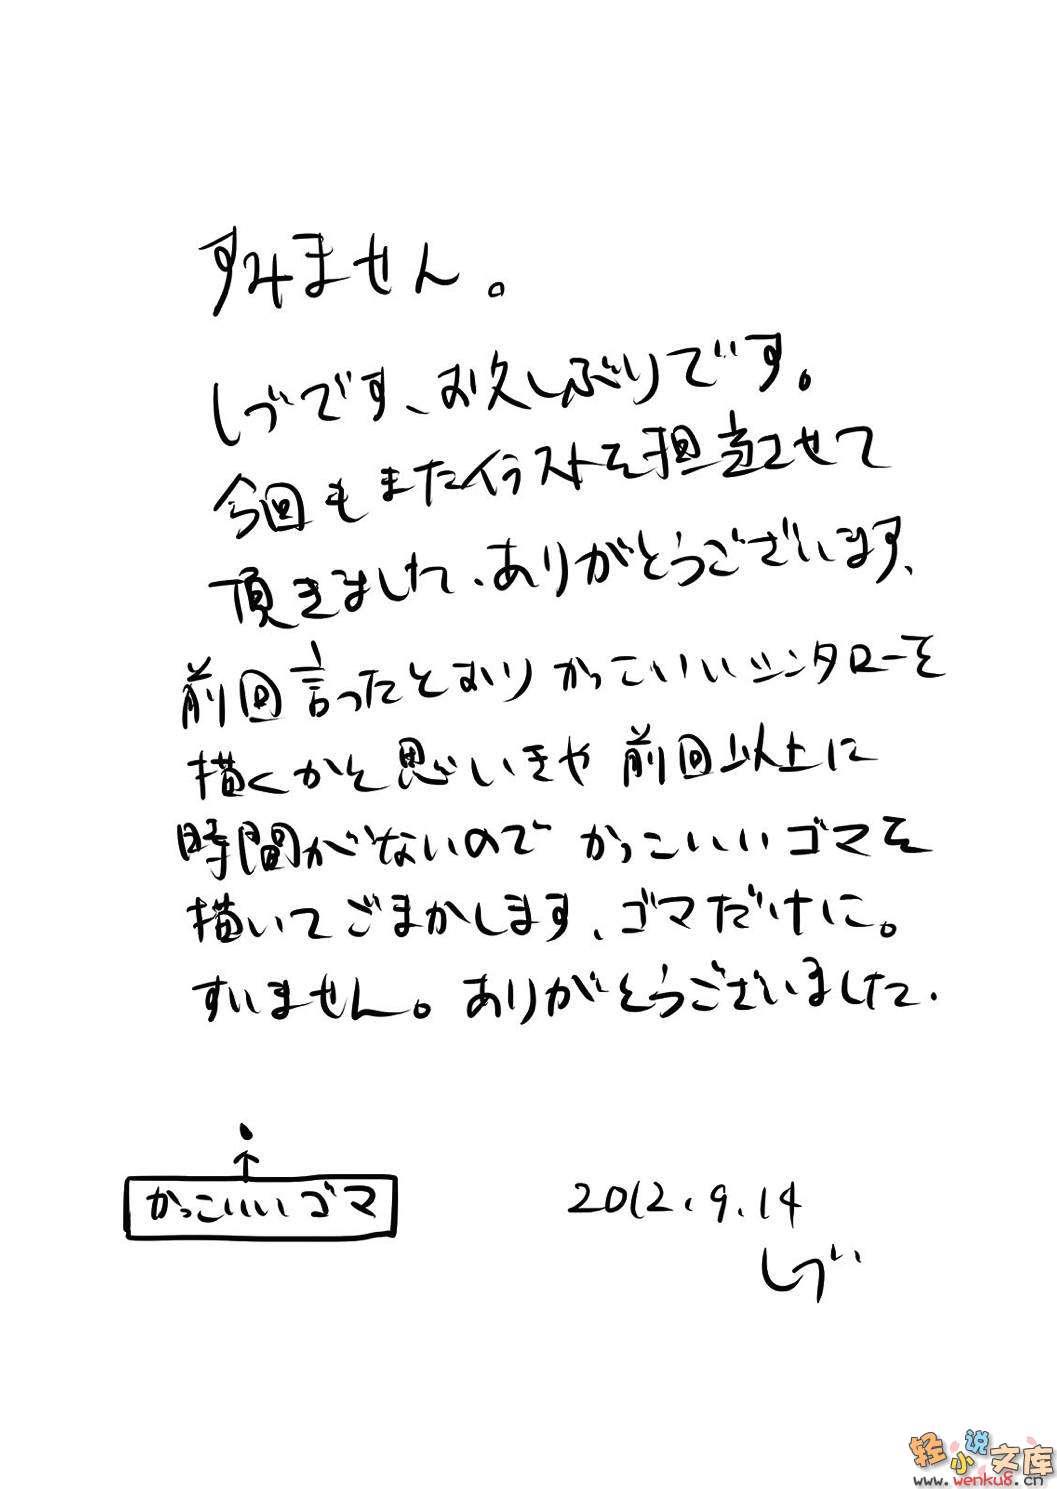 すみません。
しづです、お久しぶりです。
今回もまたイラストを担当させて
頂きまして、ありがとうございます、
前回言ったとおりかっこいいシンタローを
描くかと思いきや前回以上に
時間がないのでかっこいいゴマを
描いてごまかします、ゴマだけに。
すいません。ありがとうございました.
かっこいいゴマ
2012.9.14
しづ
轻小说文库
www.wenku8.cn